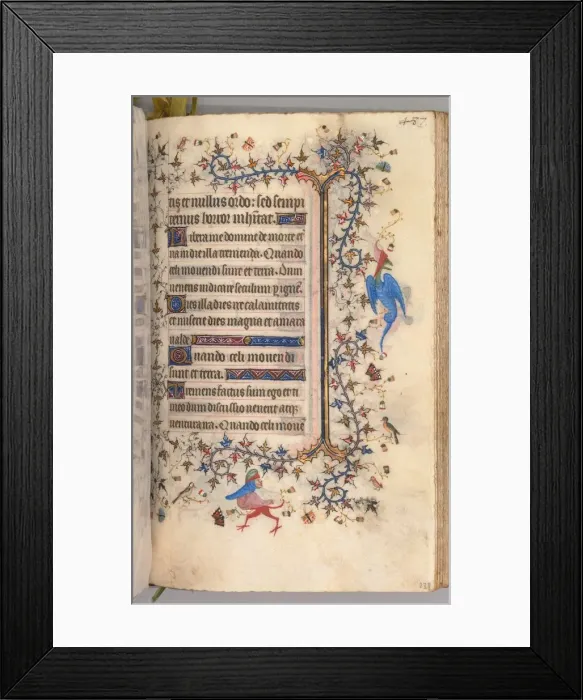 tis et nullus ordo: sed sempi
ternus horror inhitat.
Libera me domine de morte et
na in die illa tremenda. Quando
celi mouendi sunt et terra. Dum
ueneris iudicare seculum p ignē.
Dies illa dies ire calamitatis
et miserie dies magna et amara
ualde
Quando celi mouendi
sunt et terra.
Tremens factus sum ego et ti
meo dum discussio uenerit atqꝫ
uentura ira. Quando celi moue